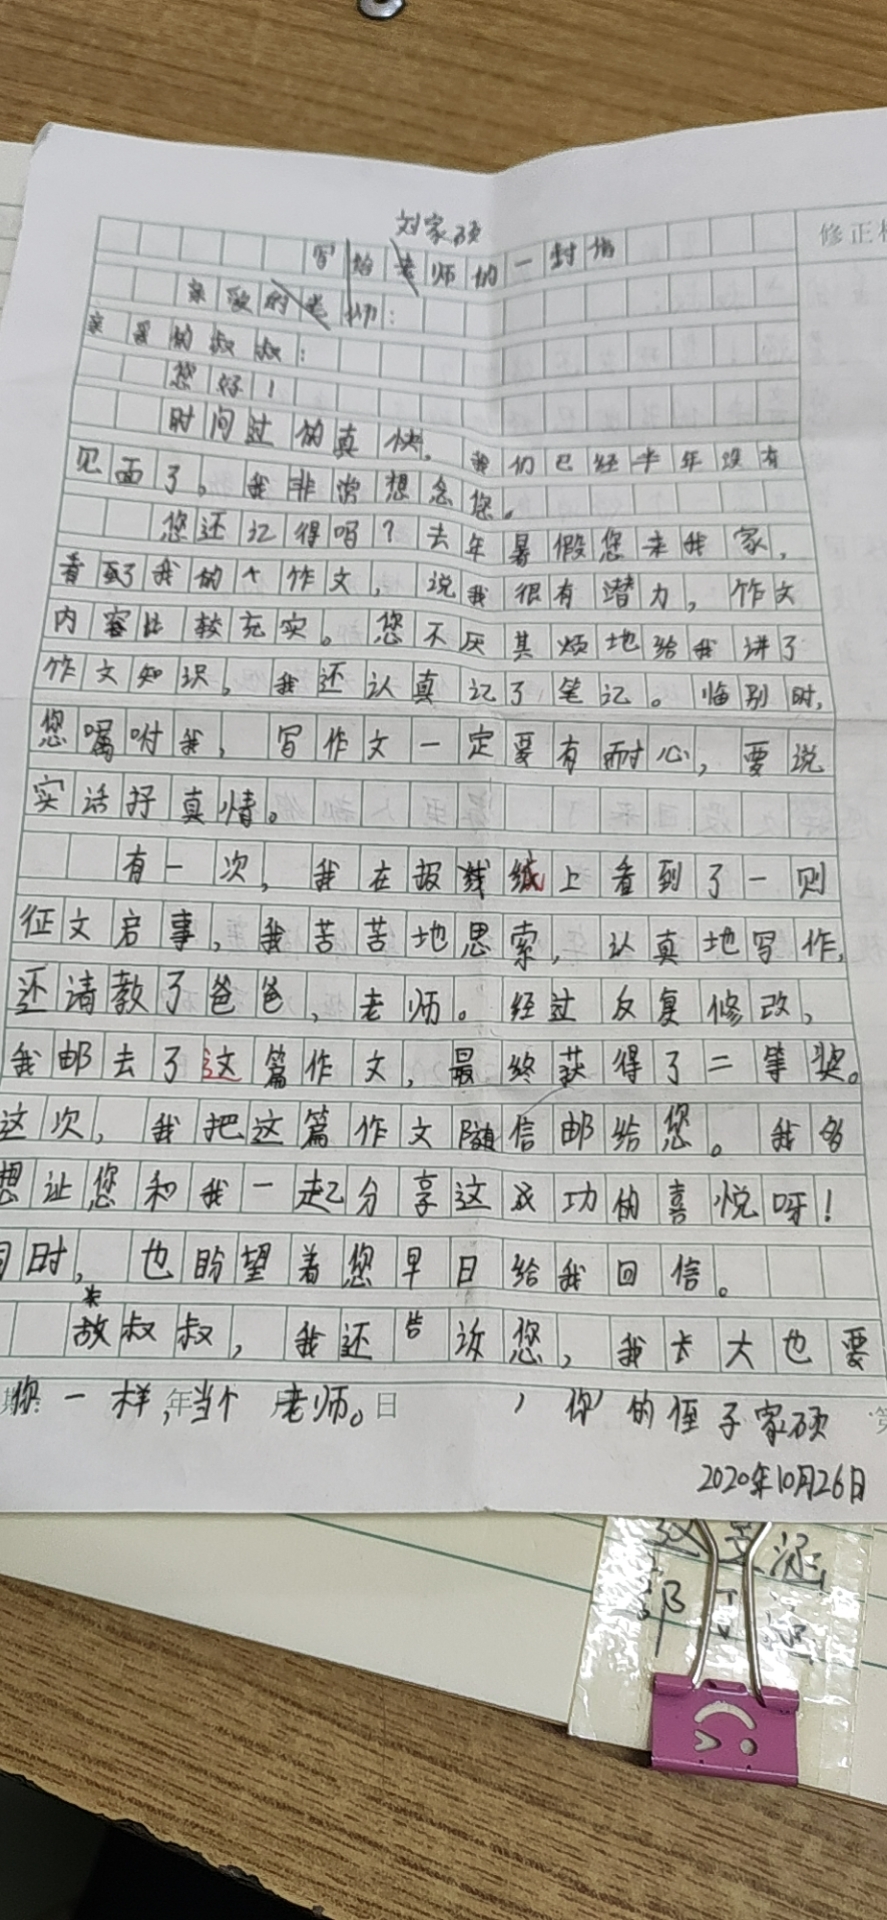 刘家硕
修正栏
写给老师的一封信
亲敬的老师：
亲爱的叔叔：
您好！
时间过的真快，我们已经半年没有
见面了。我非常想念您。
您还记得吗？去年暑假您来我家，
看到了我的个作文，说我很有潜力，作文
内容比较充实。您不厌其烦地给我讲了
作文知识。我还认真记了笔记。临别时，
您嘱咐我，写作文一定要有耐心，要说
实话抒真情。
有一次，我在报线纸上看到了一则
征文启事，我苦苦地思索，认真地写作，
还请教了爸爸，老师。经过反复修改，
我邮去了这篇作文，最终获得了二等奖。
这次，我把这篇作文随信邮给您。我多
想让您和我一起分享这成功的喜悦呀！
同时，也盼望着您早日给我回信。
叔叔，我还告诉您，我长大也要
你一样，当个老师。
年 日
，你的侄子家硕
2020年10月26日